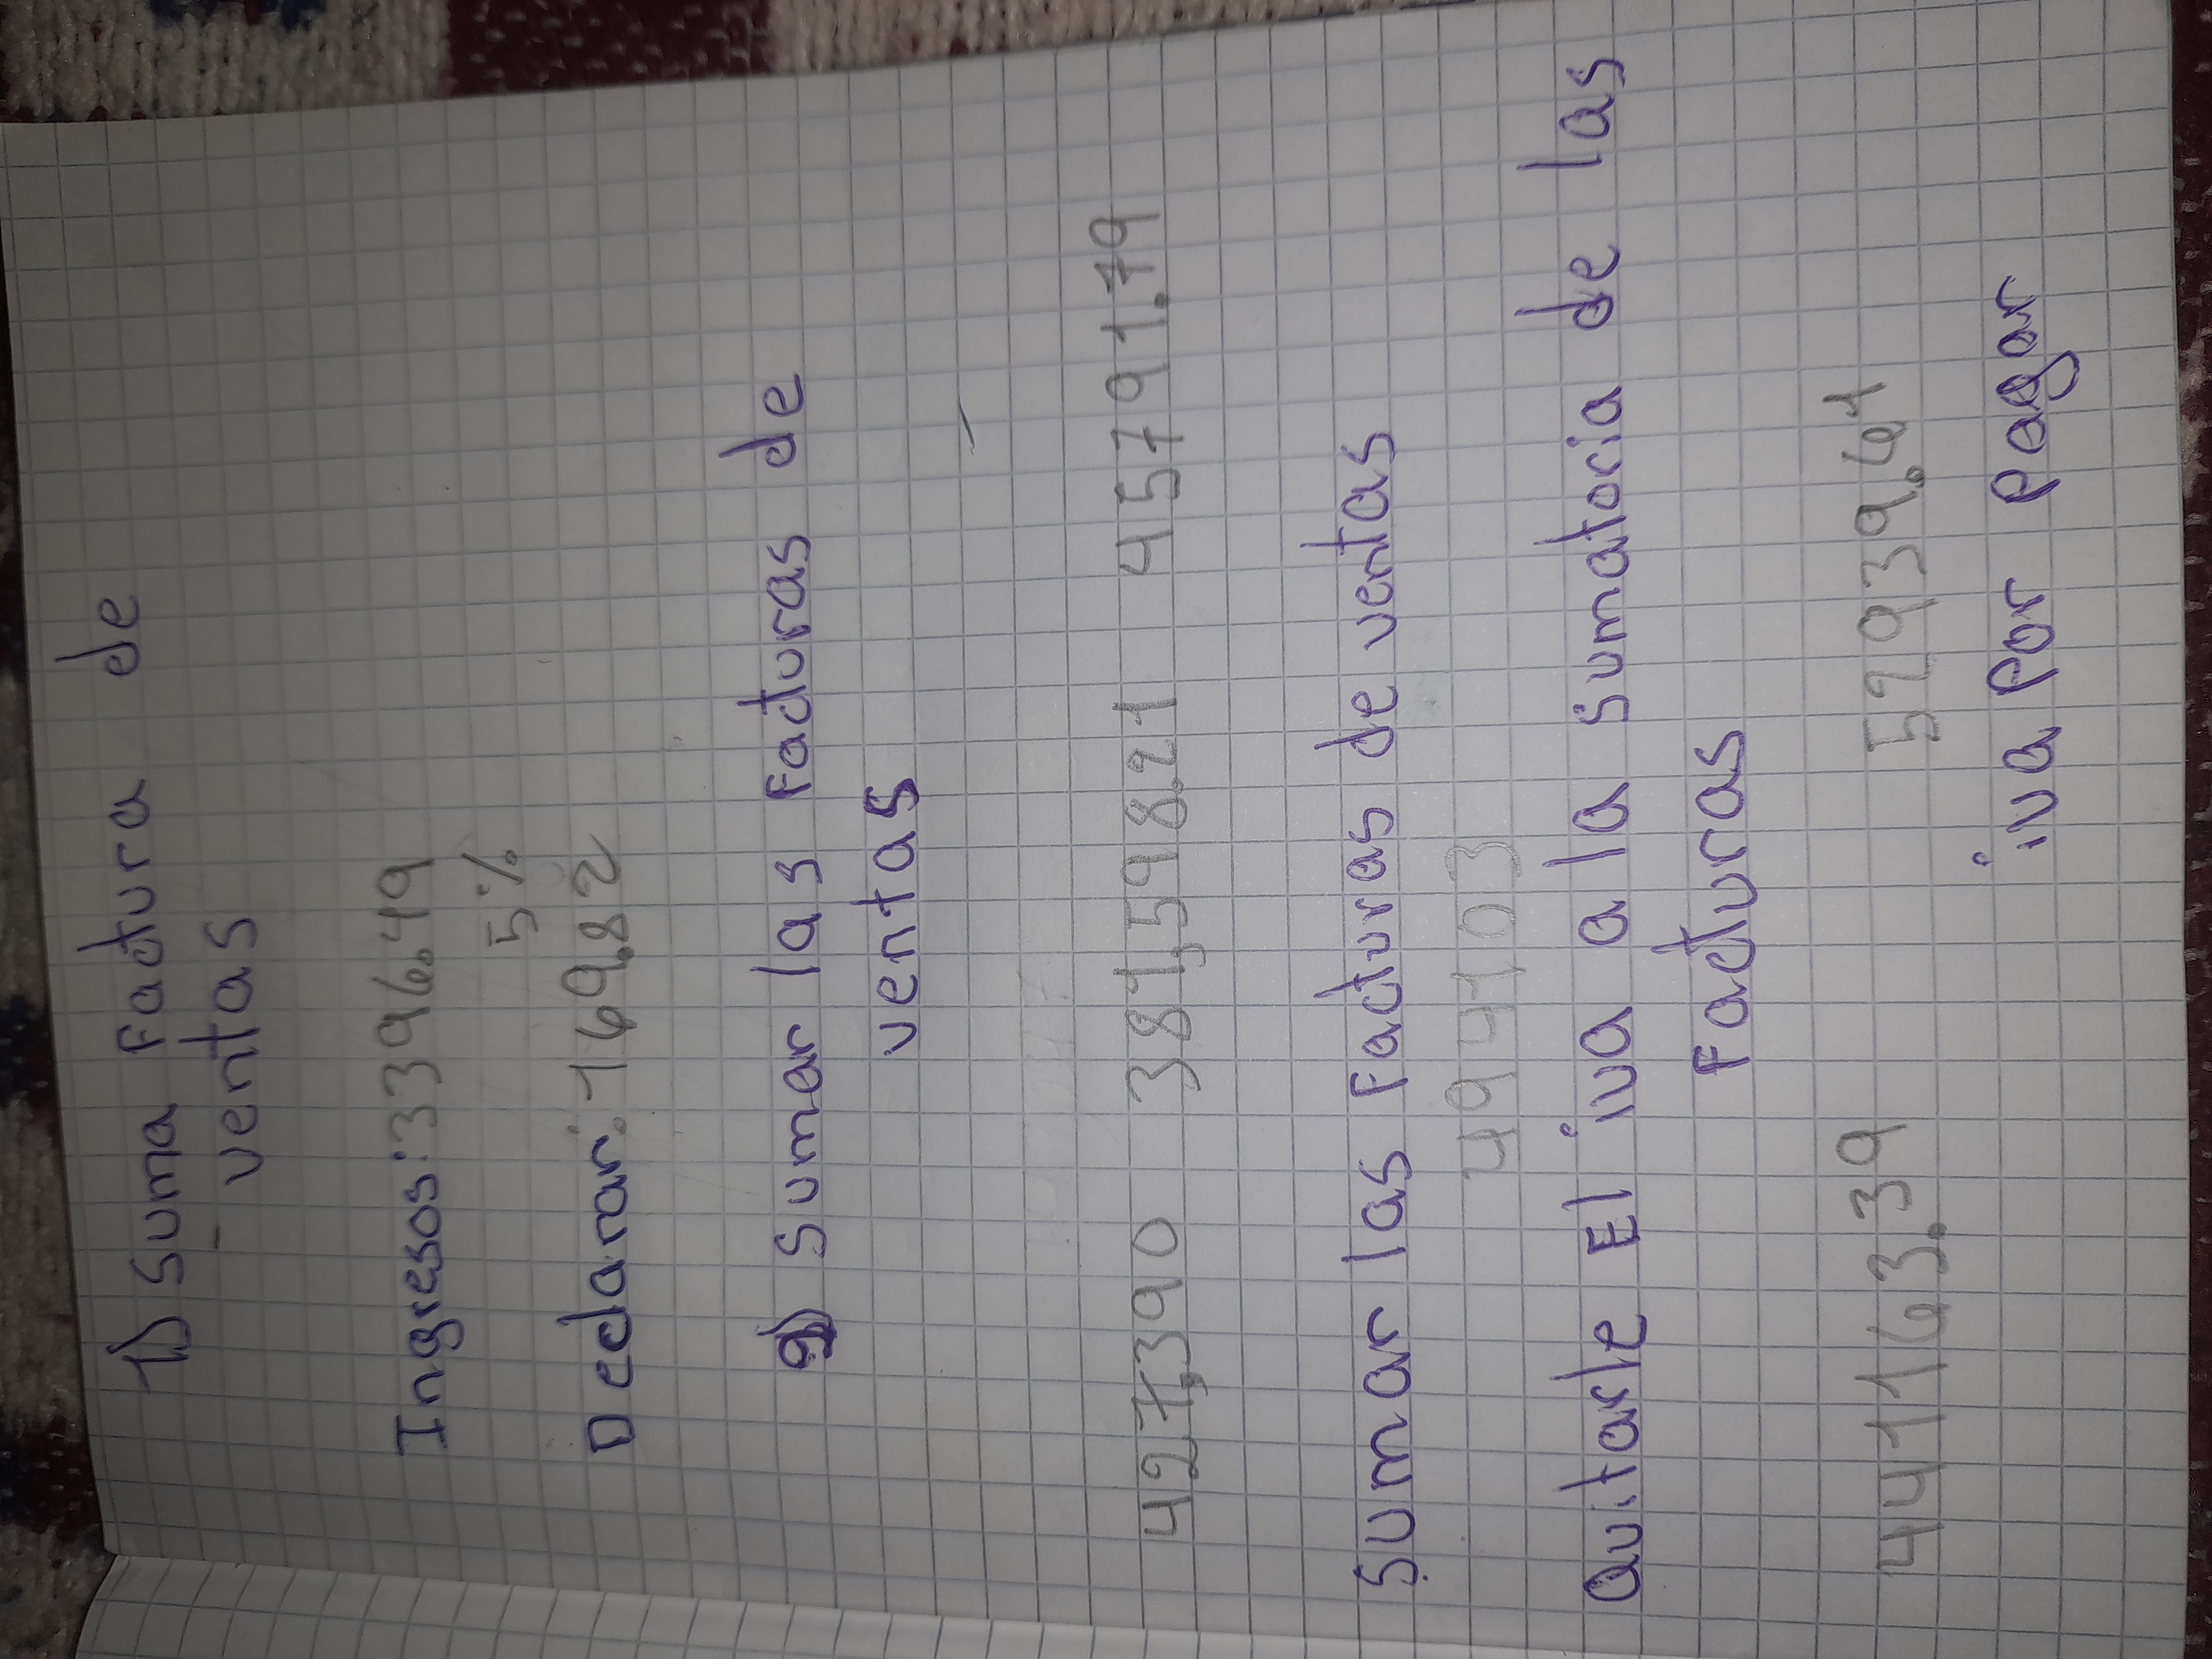 1) Suma Factura de
ventas
Ingresos: 3396.49
5%
Declarar: 169.82
a) Sumar las Facturas de
ventas
427,390 381,598.21 45791.79
Sumar las Facturas de ventas
494103
Quitarle El iva a la sumatoria de las
Facturas
441163.39 52939.61
iva por pagar